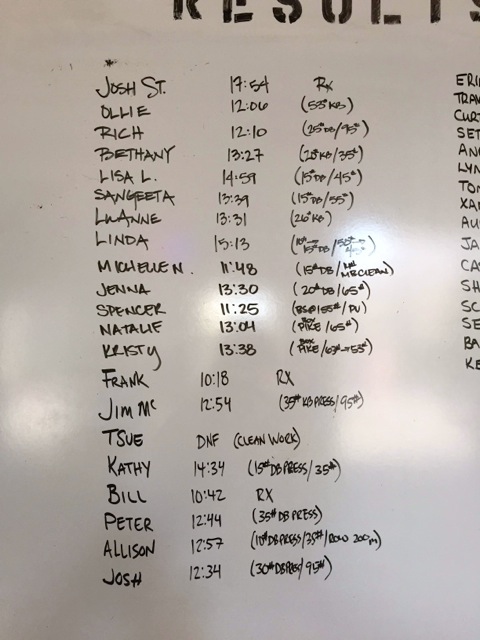 RESULTS
JOSH ST. 17:54 Rx
OLLIE 12:06 (53# KB)
RICH 12:10 (25# DB/95#)
BETHANY 13:27 (26# KB/35#)
LISA L. 14:59 (15# DB/45#)
SANGEETA 13:39 (15# DB/55#)
LUANNE 13:31 (26# KB)
LINDA 15:13
MICHELLE N. 11:48 (15# DB/ MBCLEAN)
JENNA 13:30 (20# DB/65#)
SPENCER 11:25 (BS@155#/PU)
NATALIE 13:04 (BOX PIKE/65#)
KRISTY 13:38 (BOX PIKE/63#→53#)
FRANK 10:18 RX
JIM Mc 12:54 (35# KB PRESS/95#)
TSUE DNF (CLEAN WORK)
KATHY 14:34 (15# DB PRESS/35#)
BILL 10:42 RX
PETER 12:44 (35# DB PRESS)
ALLISON 12:57 (10# DB PRESS/35#/ROW 200m)
JOSH 12:34 (30# DB PRESS/95#)
ERI
TRA
CUR
SET
AN
LYN
TO
XA
AU
JA
CA
SH
SC
SE
BA
KE